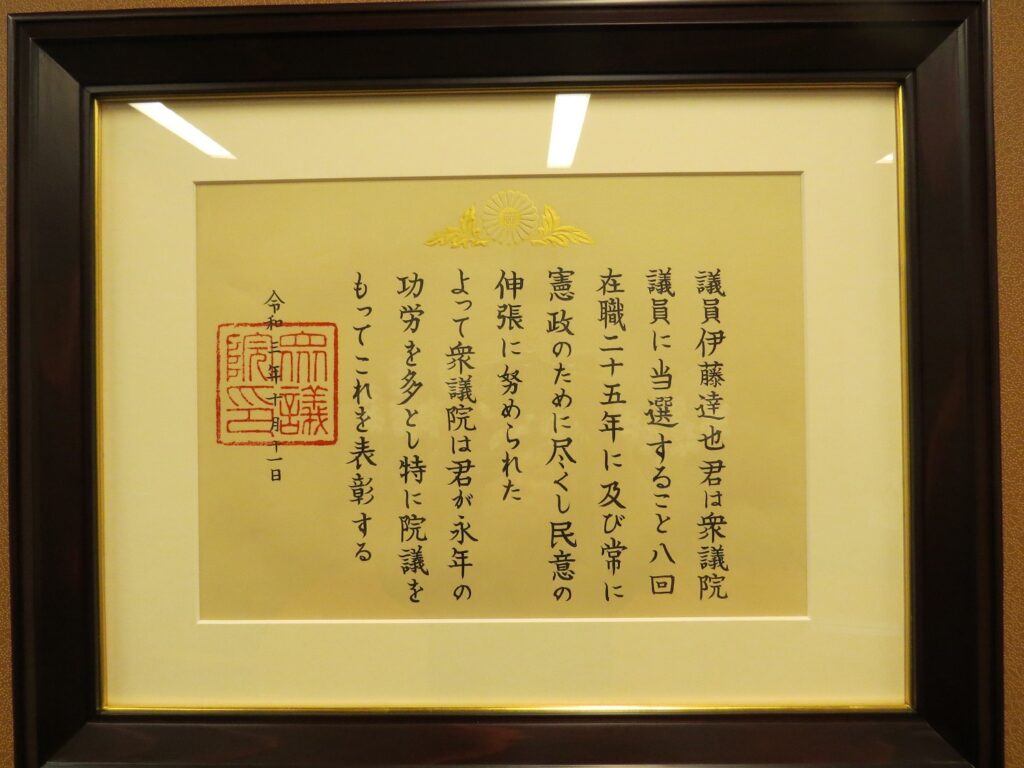 議員伊藤達也君は衆議院
議員に当選すること八回
在職二十五年に及び常に
憲政のために尽くし民意の
伸張に努められた
よって衆議院は君が永年の
功労を多とし特に院議を
もってこれを表彰する
令和三年十月十一日
衆議
院印